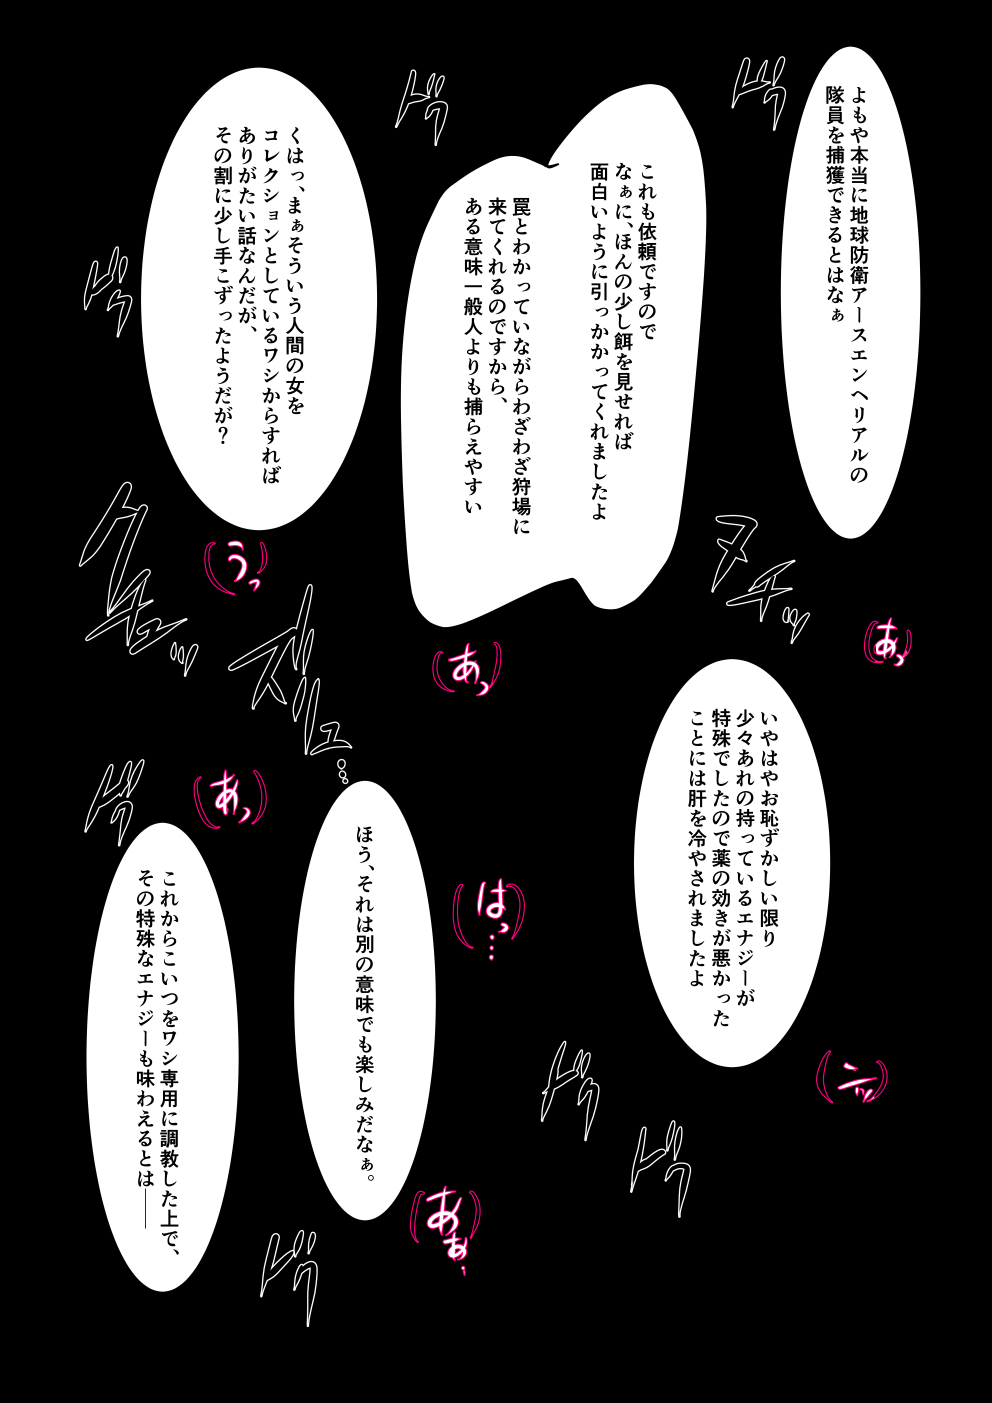 よもや本当に地球防衛アースエンヘリアルの
隊員を捕獲できるとはなぁ
ドグ
これも依頼ですので
なぁに、ほんの少し餌を見せれば
面白いように引っかかってくれましたよ
罠とわかっていながらわざわざ狩場に
来てくれるのですから、
ある意味一般人よりも捕らえやすい
ドグ
くはっ、まぁそういう人間の女を
コレクションとしているワシからすれば
ありがたい話なんだが、
その割に少し手こずったようだが?
ドグ
ヌチッ
(あっ)
(あっ)
(うっ)
クチュッ…
ズリュ…
いやはやお恥ずかしい限り
少々あれの持っているエナジーが
特殊でしたので薬の効きが悪かった
ことには肝を冷やされましたよ
(はっ…)
ドグ
ドグ
ほう、それは別の意味でも楽しみだなぁ。
(あっ)
ドグ
(あぁ…)
これからこいつをワシ専用に調教した上で、
その特殊なエナジーも味わえるとは――
ドグ